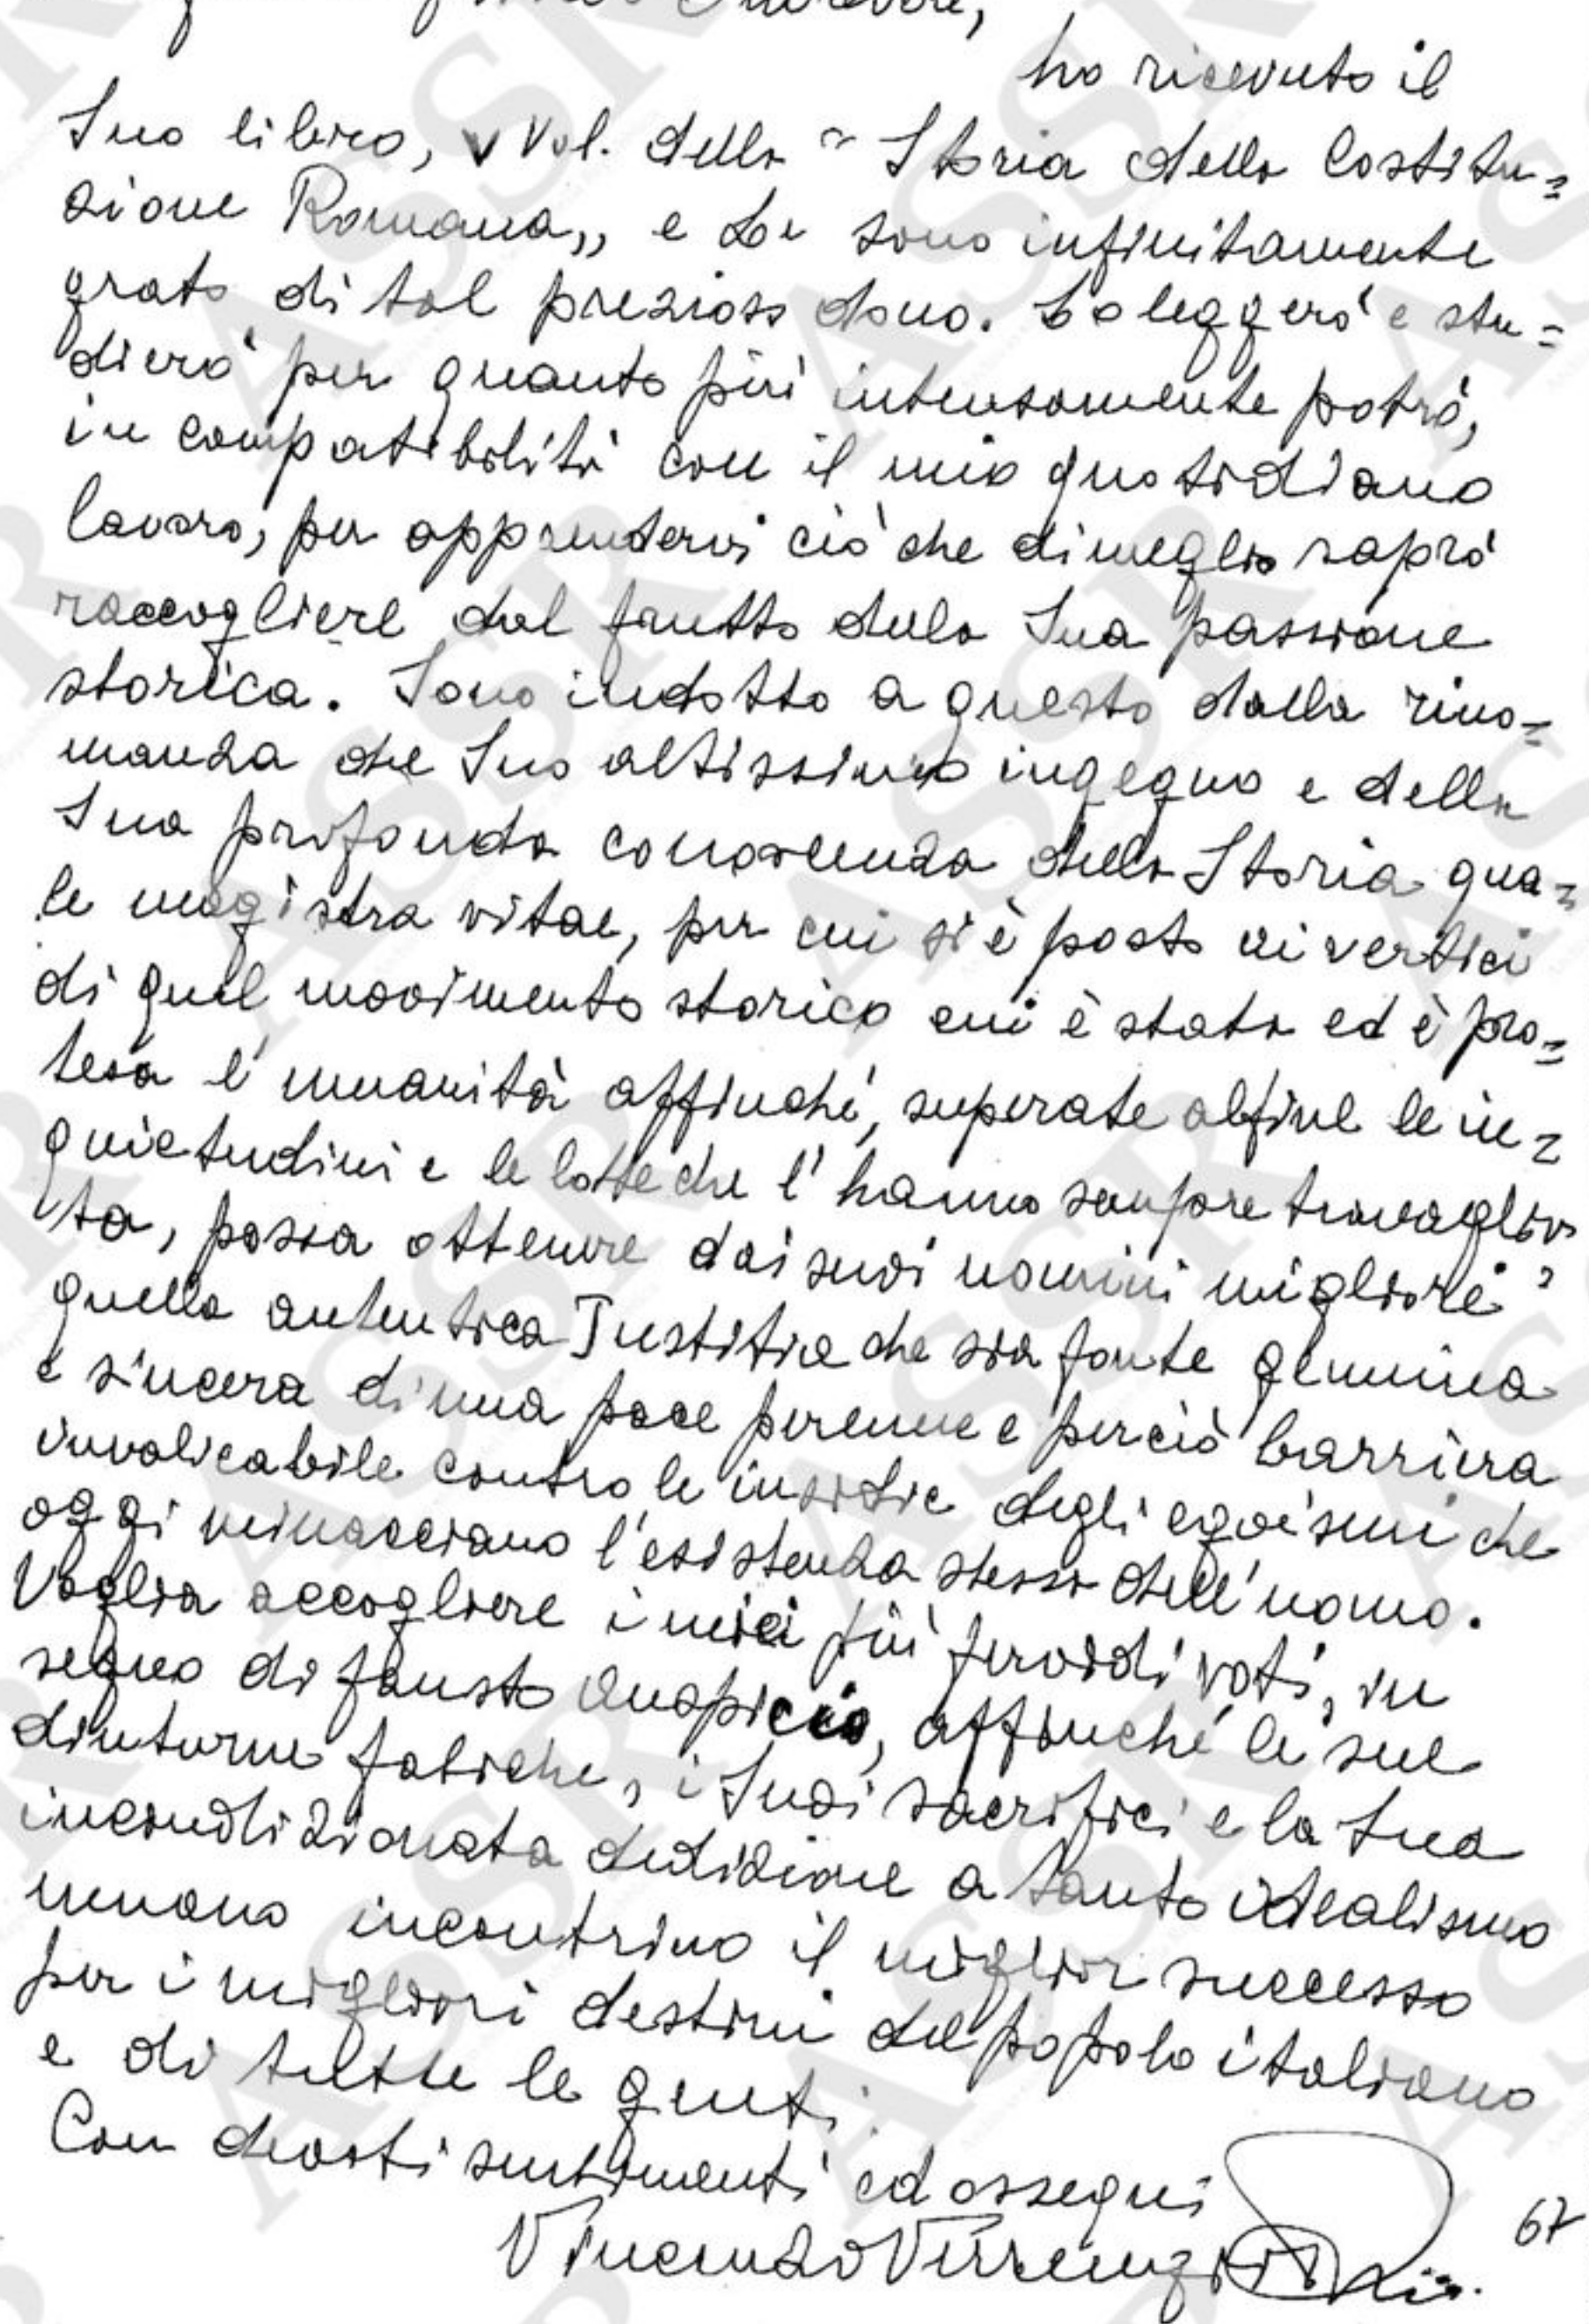 ho ricevuto il
Suo libro, V Vol. della " Storia della Costitu=
zione Romana„ e Le sono infinitamente
grato di tal prezioso dono. Lo leggerò e stu=
dierò per quanto più intensamente potrò,
in compatibilità con il mio quotidiano
lavoro, per apprendervi ciò che di meglio saprò
raccogliere dal frutto della Sua passione
storica. Sono indotto a questo dalla rino=
manza del Suo altissimo ingegno e della
Sua profonda conoscenza della Storia qua=
le magistra vitae, per cui si è posto ai vertici
di quel movimento storico cui è stata ed è pro=
tesa l'umanità affinché, superate alfine le in=
quietudini e le lotte che l'hanno sempre travaglia
ta, possa ottenere dai suoi uomini migliori
quella autentica Iustitia che sia fonte genuina
e sincera di una pace perenne e perciò barriera
invalicabile contro le insidie degli egoismi che
oggi minacciano l'esistenza stessa dell'uomo.
Voglia accogliere i miei più fervidi voti, in
segno di fausto auspicio, affinché le sue
diuturne fatiche, i Suoi sacrifici e la Sua
incondizionata dedizione a tanto idealismo
umano incontrino il miglior successo
per i migliori destini del popolo italiano
e di tutte le genti.
Con devoti sentimenti ed ossequi
Vincenzo
67